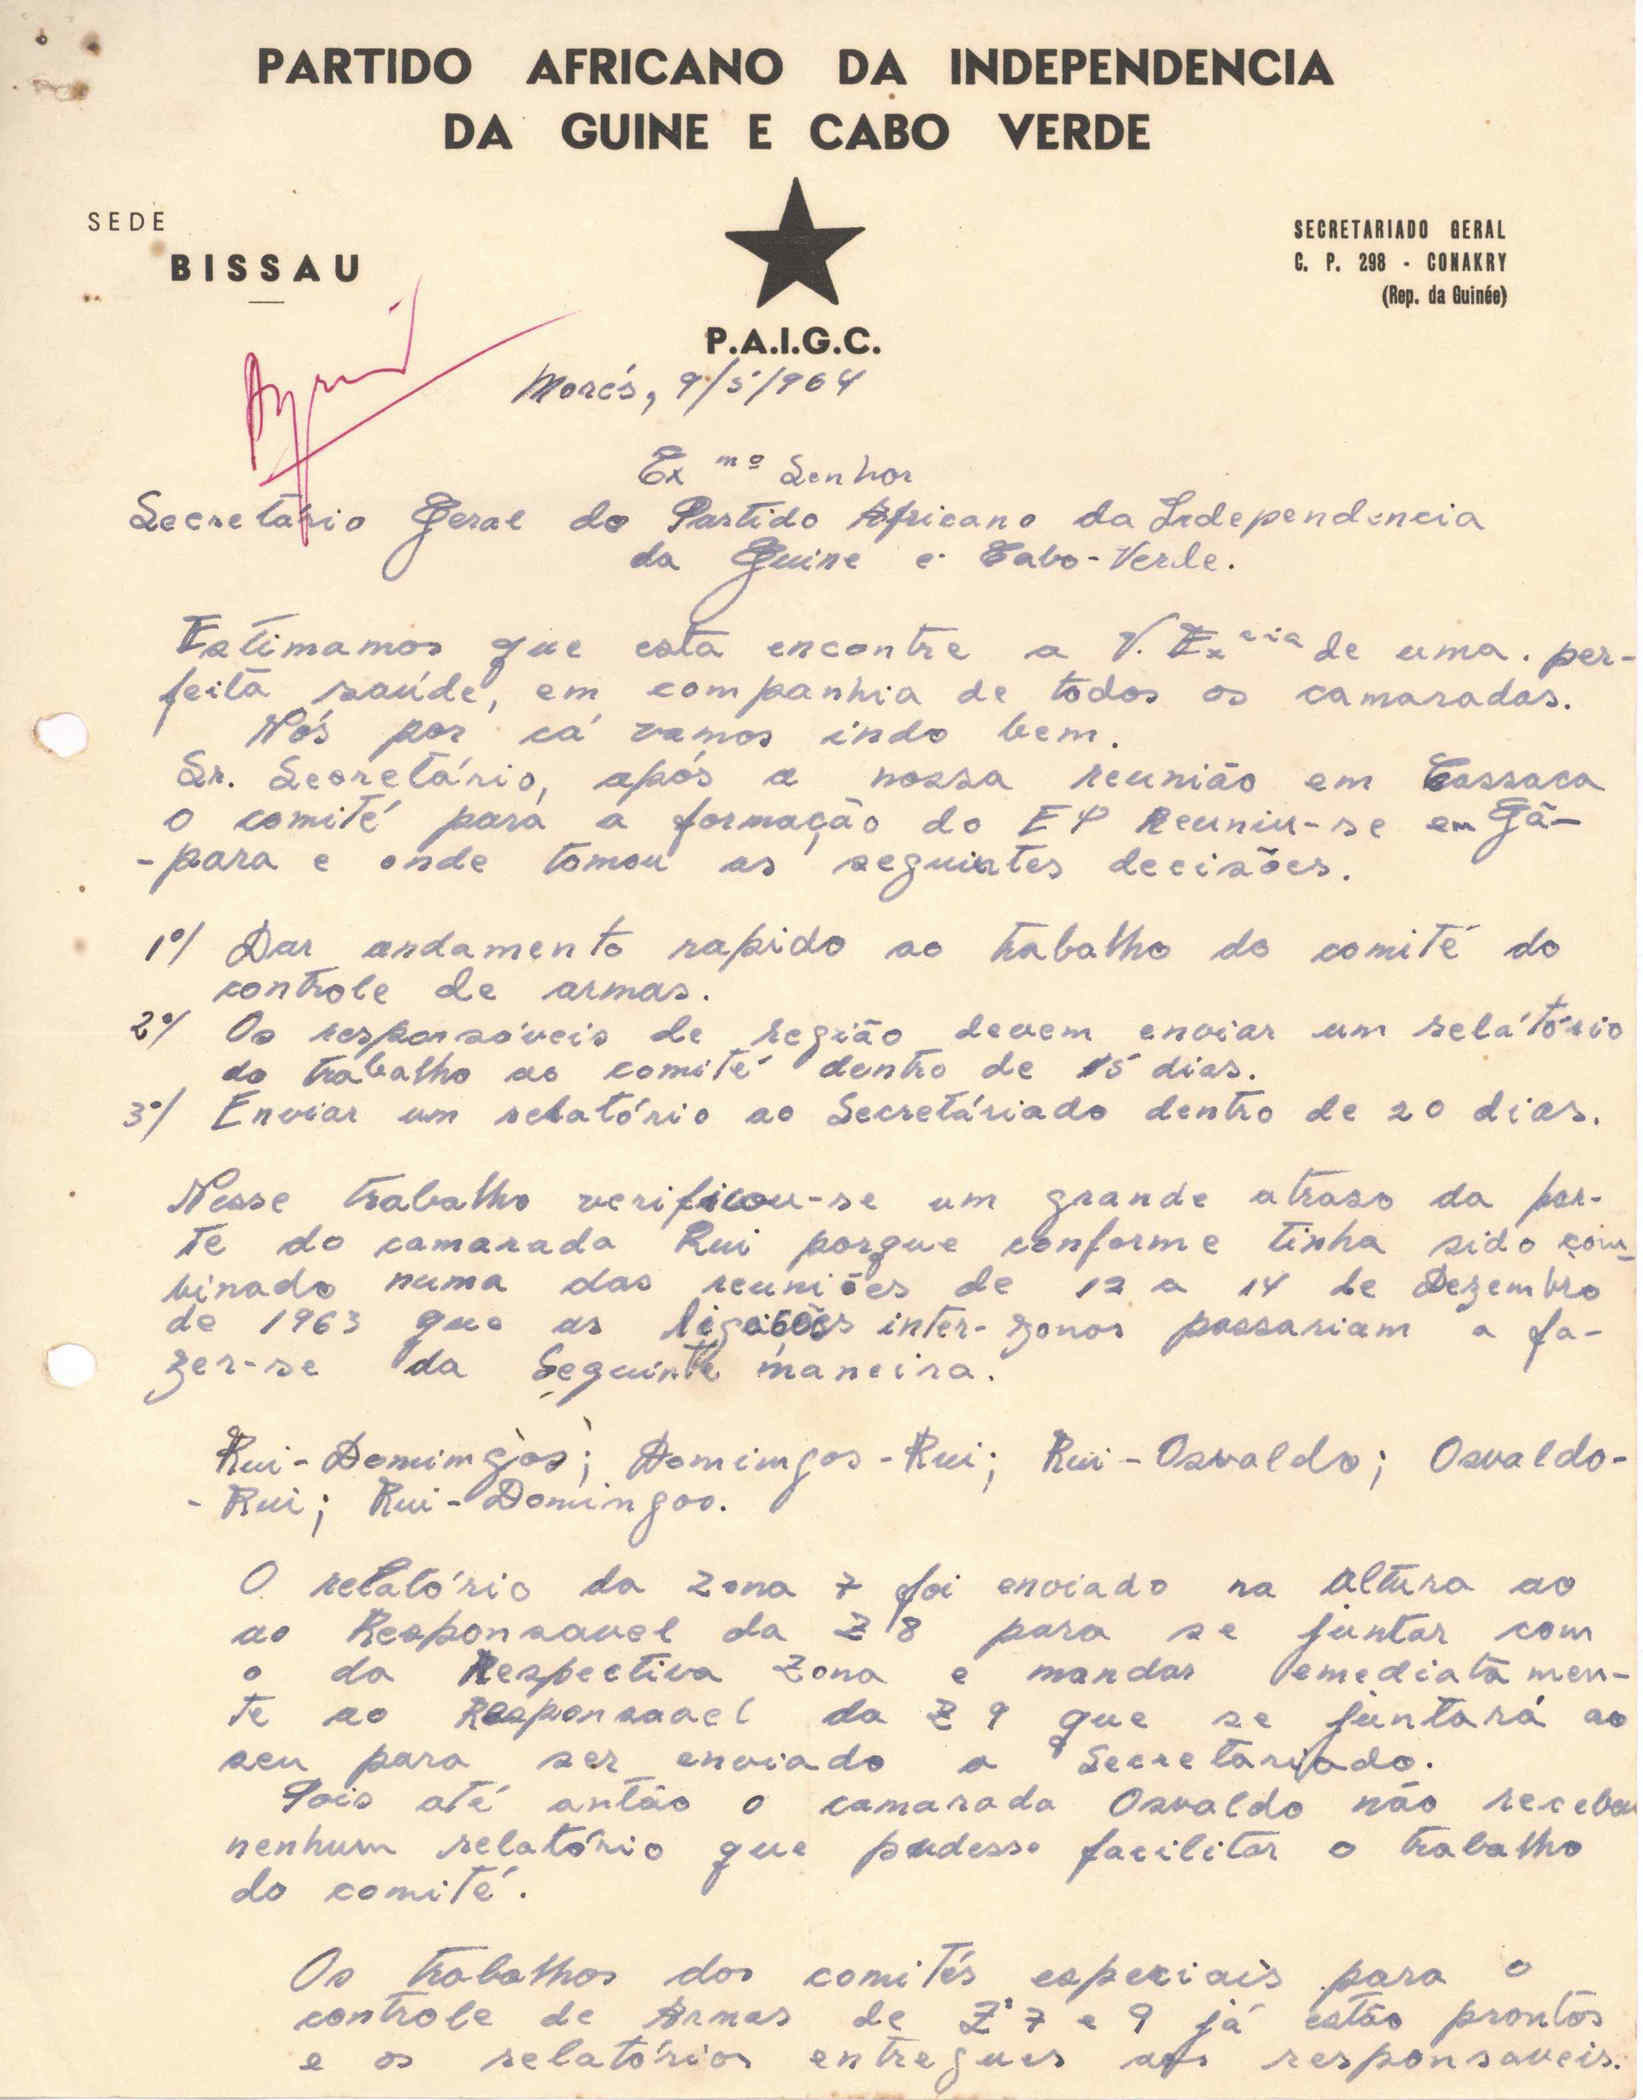 PARTIDO AFRICANO DA INDEPENDENCIA
DA GUINE E CABO VERDE
SEDE
BISSAU
SECRETARIADO GERAL
C. P. 298 - CONAKRY
(Rep. da Guinée)
P.A.I.G.C.
Morés, 9/5/964
Exmº Senhor
Secretário Geral do Partido Africano da Independencia
da Guine e Cabo-Verde.
Estimamos que esta encontre a V. Exª de uma per-
feita saúde, em companhia de todos os camaradas.
Nós por cá vamos indo bem.
Sr. Secretário, após a nossa reunião em Cassaca
O comité para a formação do EP Reuniu-se em Gã-
-para e onde tomou as seguintes decisões.
1º/ Dar andamento rapido ao trabalho do comité do
controle de armas.
2º/ Os responsáveis de região devem enviar um relátório
do trabalho ao comité dentro de 15 dias.
3º/ Enviar um relatório ao Secretáriado dentro de 20 dias.
Nesse trabalho verificou-se um grande atraso da par-
te do camarada Rui porque conforme tinha sido com-
binado numa das reuniões de 12 a 14 de Dezembro
de 1963 que as ligações inter-zonas passariam a fa-
zer-se da Seguinte maneira.
Rui-Domingos; Domingos-Rui; Rui-Osvaldo; Osvaldo-
-Rui; Rui-Domingos.
O relatório da zona 7 foi enviado na altura ao
ao Responsavel da Z 8 para se juntar com
o da Respectiva Zona e mandar emediatamen-
te ao Responsavel da Z 9 que se juntará ao
seu para ser enviado a Secretariado.
Pois até antão o camarada Osvaldo não recebeu
nenhum relatório que pudesse facilitar o trabalho
do comité.
Os trabalhos dos comités especiais para o
controle de Armas de Z 7 e 9 já estão prontos
e os relatórios entregues aos responsaveis.